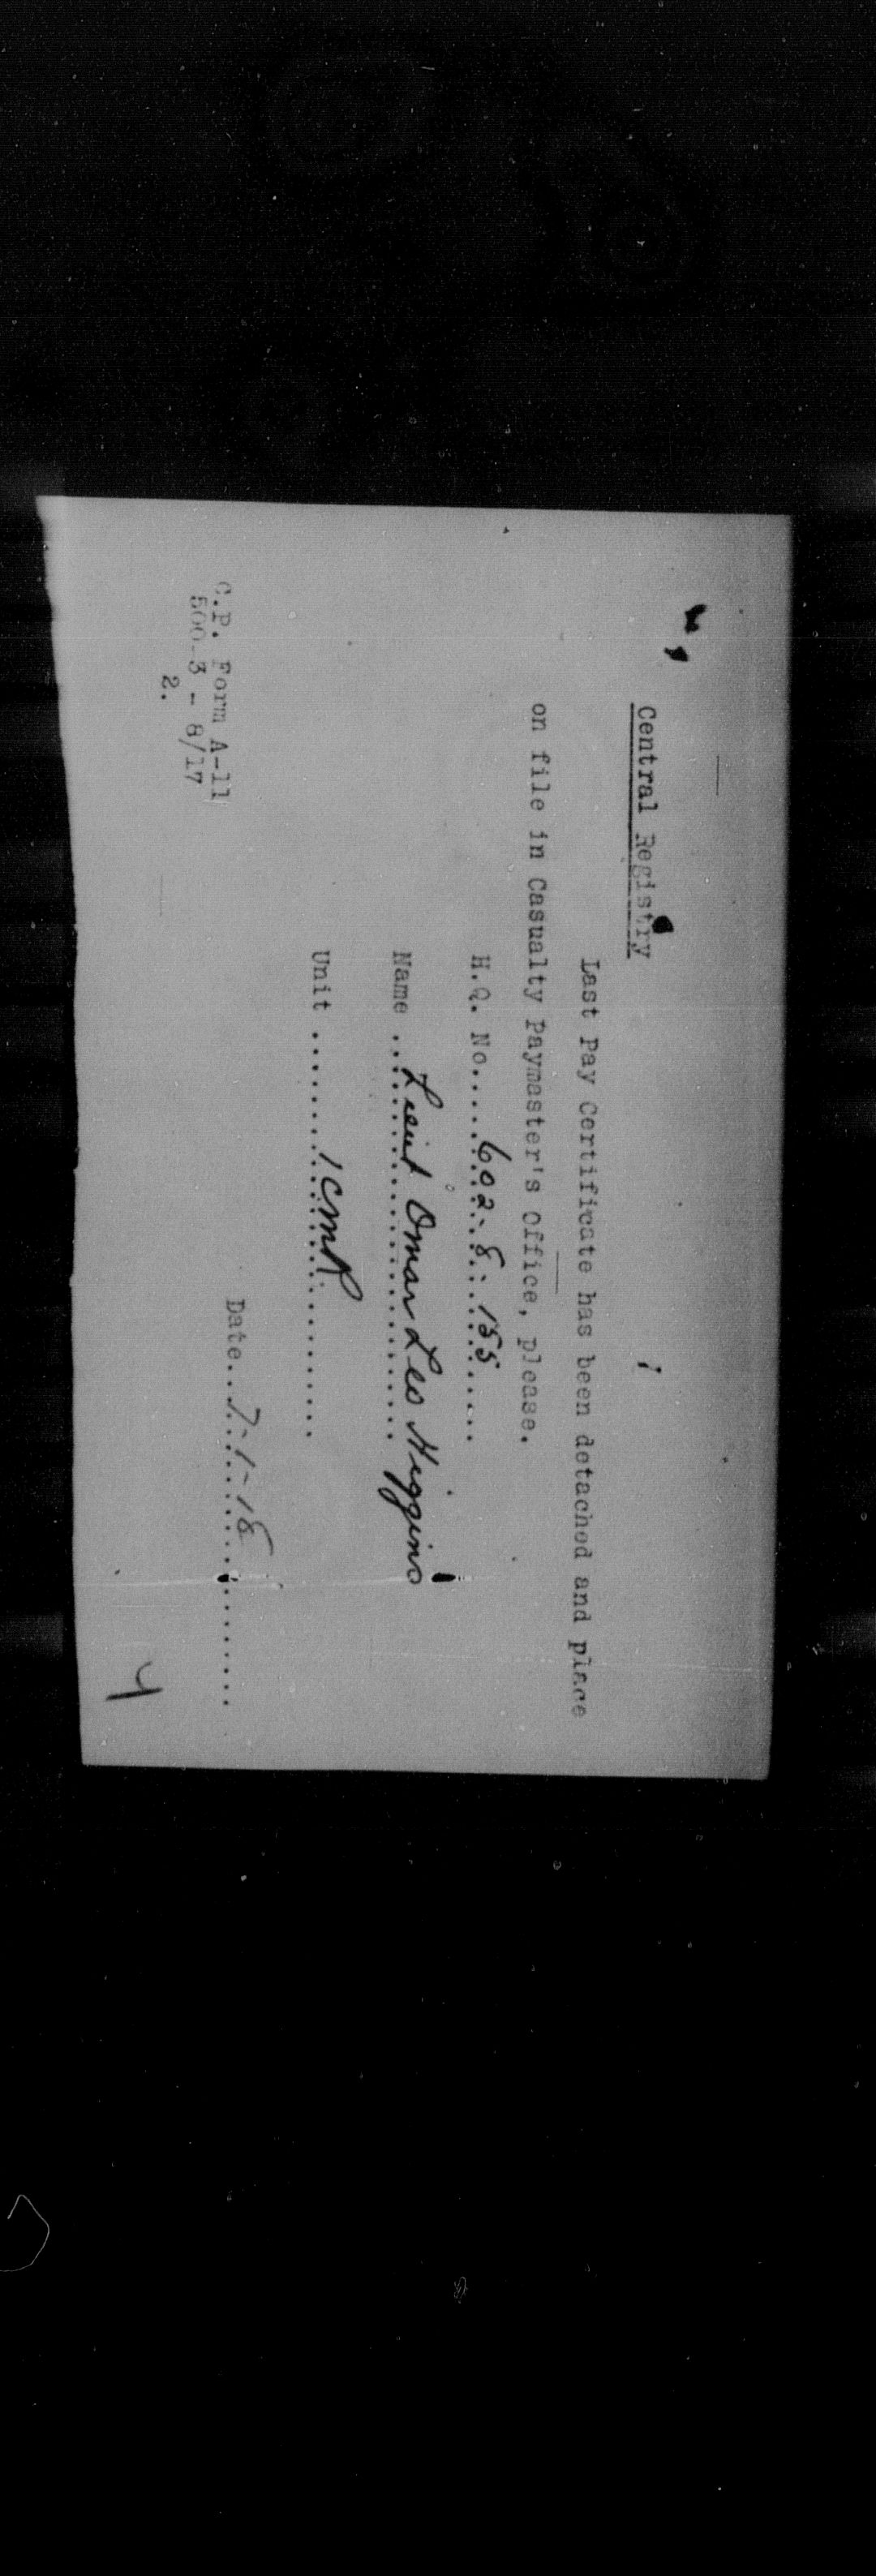 Central Registry
Last Pay Certificate has been detached and place
on file in Casualty Paymaster's Office, please.
H.Q. No.....602-8-155.....
Name ..Lieut Omar Leo Higgins
Unit ........1 CMR.........
Date..7-1-18..........
C.P. Form A-11
500-3 - 8/17
2.
4